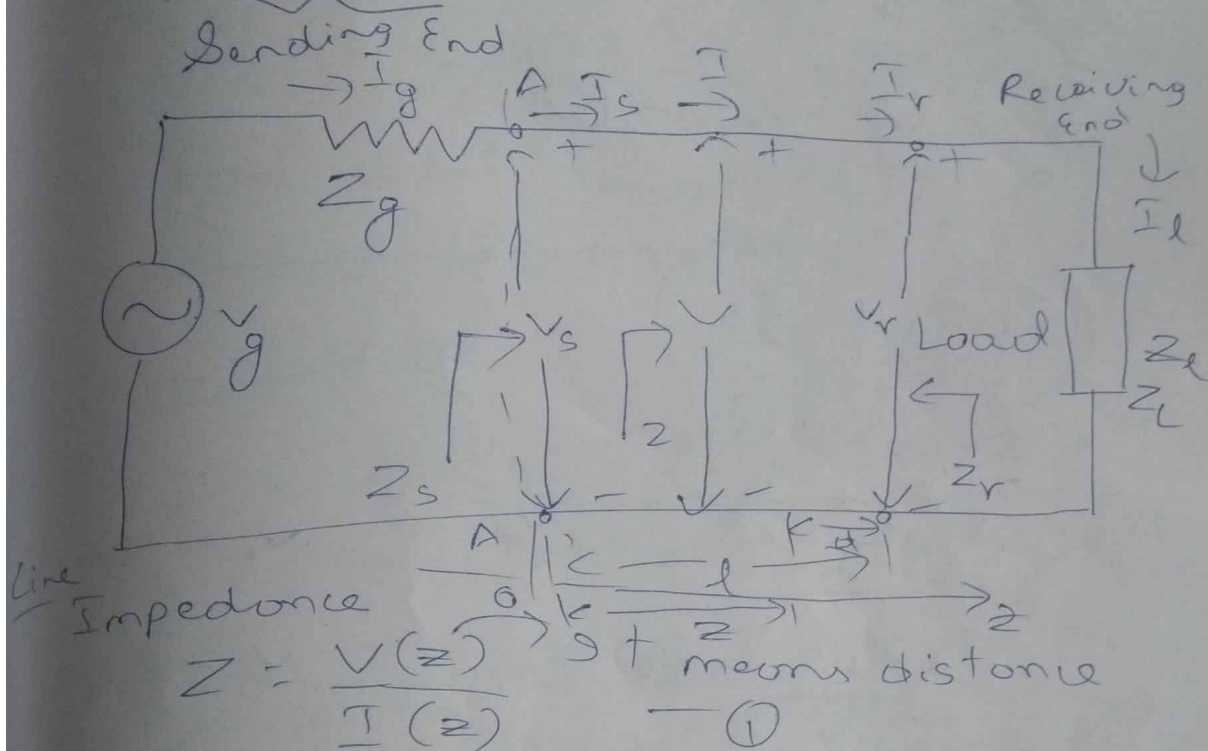 Sending End
Ig A Is I Ir Receiving End
+ + +
Zg Il
Vg Vs V Vr Load Zl
ZL
Zs Z Zr
A - - -
l d
0 z z
Line
Impedance It means distance
Z = V(z)
I(z) — ①